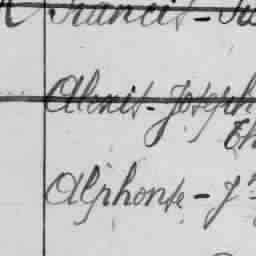 Francis-
Alexis-Joseph
Alphonse-Jn